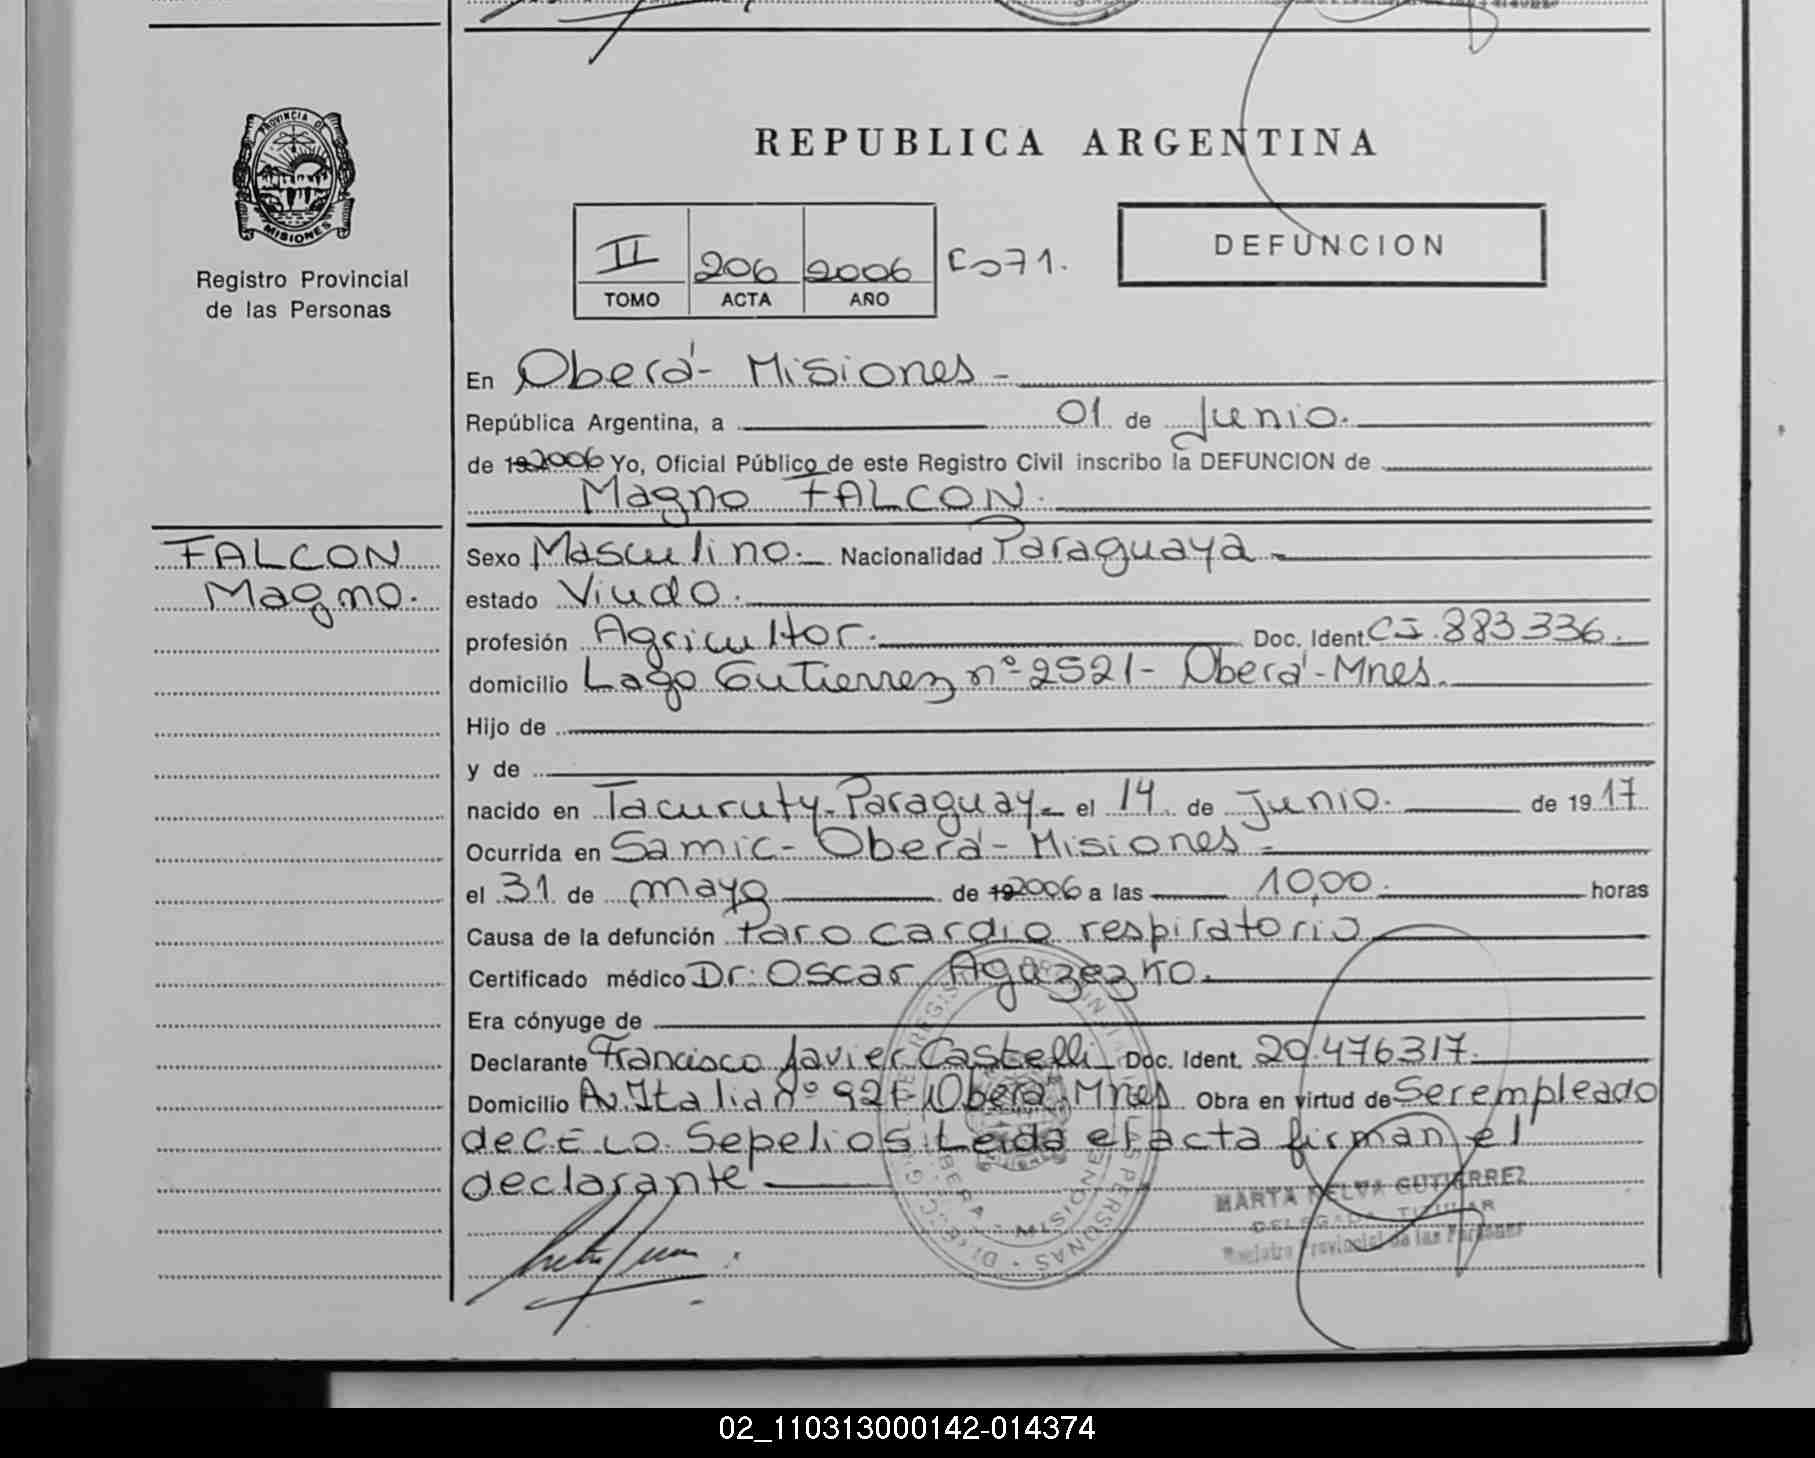 PROVINCIA DE
MISIONES
Registro Provincial
de las Personas
REPUBLICA ARGENTINA
II 206 2006
TOMO ACTA AÑO
DEFUNCION
En Oberá- Misiones-
República Argentina, a 01 de Junio.
de 192006 Yo, Oficial Público de este Registro Civil inscribo la DEFUNCION de
Magno FALCON.
FALCON
Magno.
Sexo Masculino. Nacionalidad Paraguaya-
estado Viudo.
profesión Agricultor. Doc. Ident. CI.883336.
domicilio Lago Gutierrez nº-2521- Oberá-Mnes.
Hijo de
y de
nacido en Tacuruty-Paraguay- el 14 de Junio. de 1917
Ocurrida en Samic- Oberá- Misiones-
el 31 de mayo de 192006 a las 10,00. horas
Causa de la defunción Paro cardio respiratorio
Certificado médico Dr: Oscar
Era cónyuge de
Declarante Francisco Javier Castelli Doc. Ident. 20.476317.
Domicilio Av. Italia nº 921- Oberá Mnes Obra en virtud de Ser empleado
de C.E.L.O. Sepelios. Leida el acta firman el
declarante
MARTA NELVA GUTIERREZ
DELEGADA TITULAR
Registro Provincial de las Personas
02_110313000142-014374